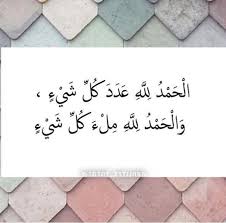 الْحَمْدُ لِلَّهِ عَدَدَ كُلِّ شَيْءٍ ،
وَالْحَمْدُ لِلَّهِ مِلْءَ كُلِّ شَيْءٍ